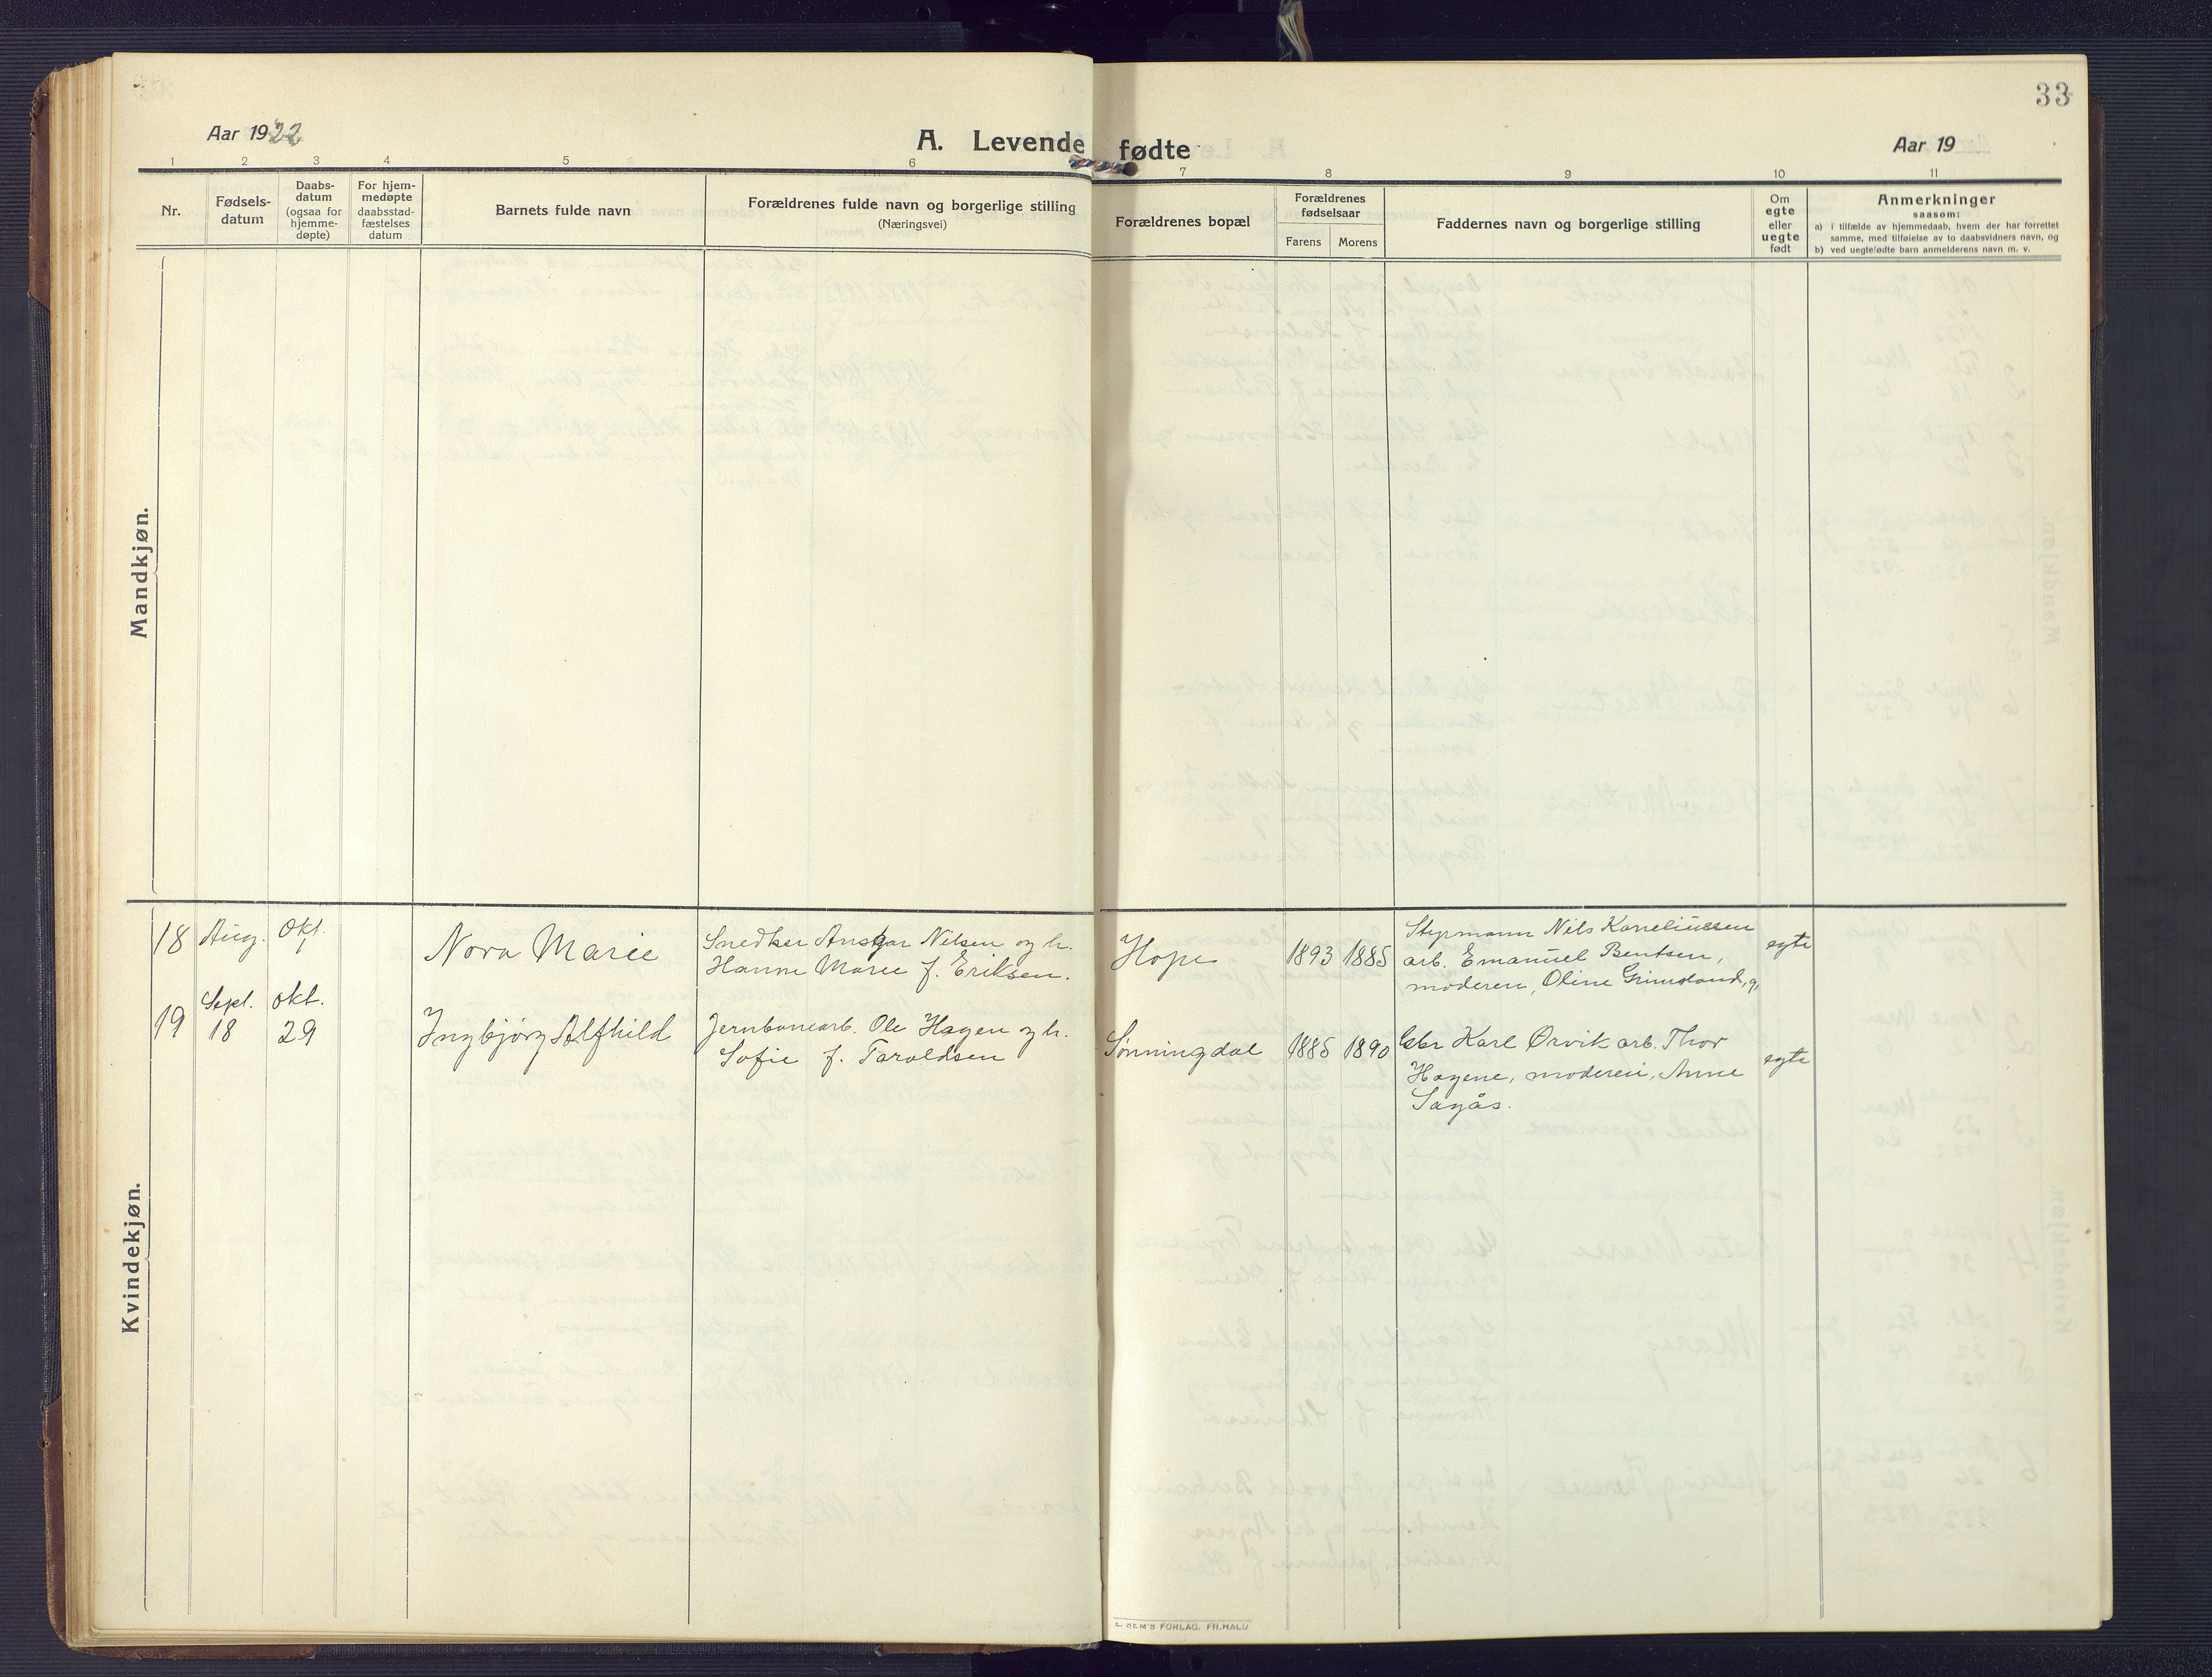 33
Aar 1922
A. Levende fødte
Aar 19
1 2 3 4 5 6 7 8 9 10 11
Nr.
Fødsels-
datum
Daabs-
datum
(ogsaa for
hjemme-
døpte)
For hjem-
medøpte
daabsstad-
fæstelses
datum
Barnets fulde navn
Forældrenes fulde navn og borgerlige stilling
(Næringsvei)
Forældrenes bopæl
Forældrenes
fødselsaar
Farens Morens
Faddernes navn og borgerlige stilling
Om
egte
eller
uegte
født
Anmerkninger
saasom:
a) i tilfælde av hjemmedaab, hvem der har forrettet
samme, med tilføielse av to daabsvidners navn, og
b) ved uegtefødte barn anmelderens navn m. v.
Mandkjøn.
Kvindekjøn.
18
Aug.
Okt.
1
Nora Marie
Snedker Ansgar Nilsen og h.
Hanne Marie f. Eriksen.
Hope
1893 1885
Styrmann Nils Korneliussen
arb. Emanuel Bentsen,
moderen, Oline Grimsland,
egte
19
Sept.
18
Okt.
29
Ingbjørg Alfhild
Jernbanearb. Ole Hagen og h.
Sofie f. Taraldsen
Sønningdal
1885 1890
Gbr Karl Ørvik arb. Thor
Hagene, moderen, Anne
Sagås.
egte
FORLAG, FR.HALD